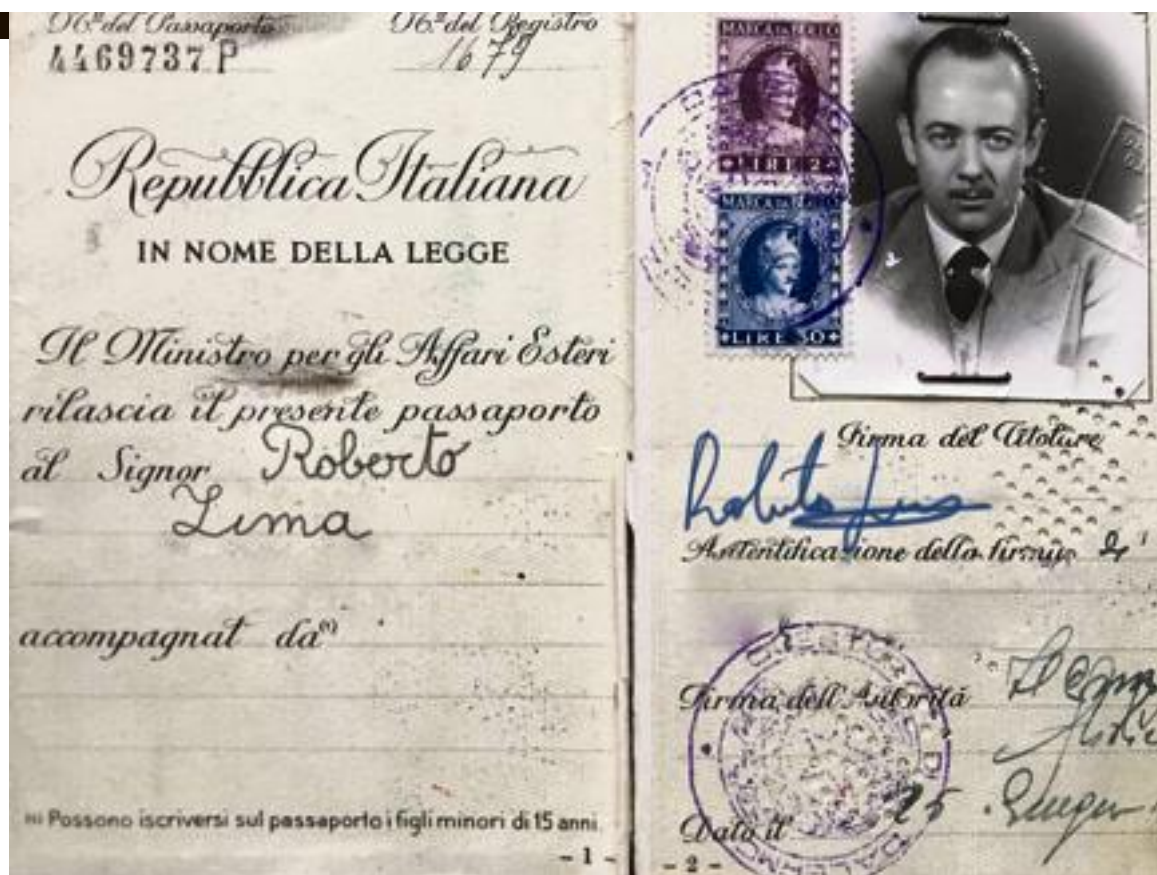 N.º del Passaporto
N.º del Registro
4469737 P
1679
Repubblica Italiana
IN NOME DELLA LEGGE
Il Ministro per gli Affari Esteri
rilascia il presente passaporto
al Signor Roberto
Lima
accompagnat da (1)
(1) Possono iscriversi sul passaporto i figli minori di 15 anni.
- 1 -
MARCA DA BOLLO
LIRE 2
MARCA DA BOLLO
LIRE 50
Firma del Titolare
Roberto Lima
Autentificazione della firma
Firma dell'Autorità
Dato il 25
- 2 -